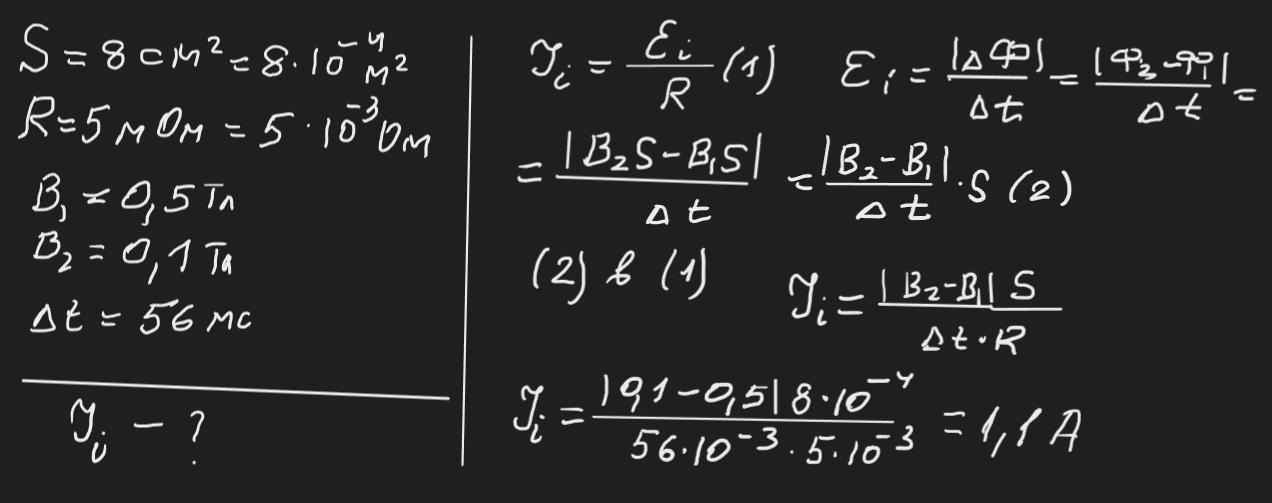 S = 8 см² = 8·10⁻⁴ м²
R = 5 мОм = 5·10⁻³ Ом
B₁ = 0,5 Тл
B₂ = 0,1 Тл
Δt = 56 мс
Ji - ?
Ji = εi / R (1) εi = |ΔФ| / Δt = |Ф₂-Ф₁| / Δt =
= |B₂S-B₁S| / Δt = |B₂-B₁| / Δt · S (2)
(2) в (1) Ji = |B₂-B₁| S / Δt·R
Ji = |0,1-0,5| 8·10⁻⁴ / 56·10⁻³·5·10⁻³ = 1,1 A